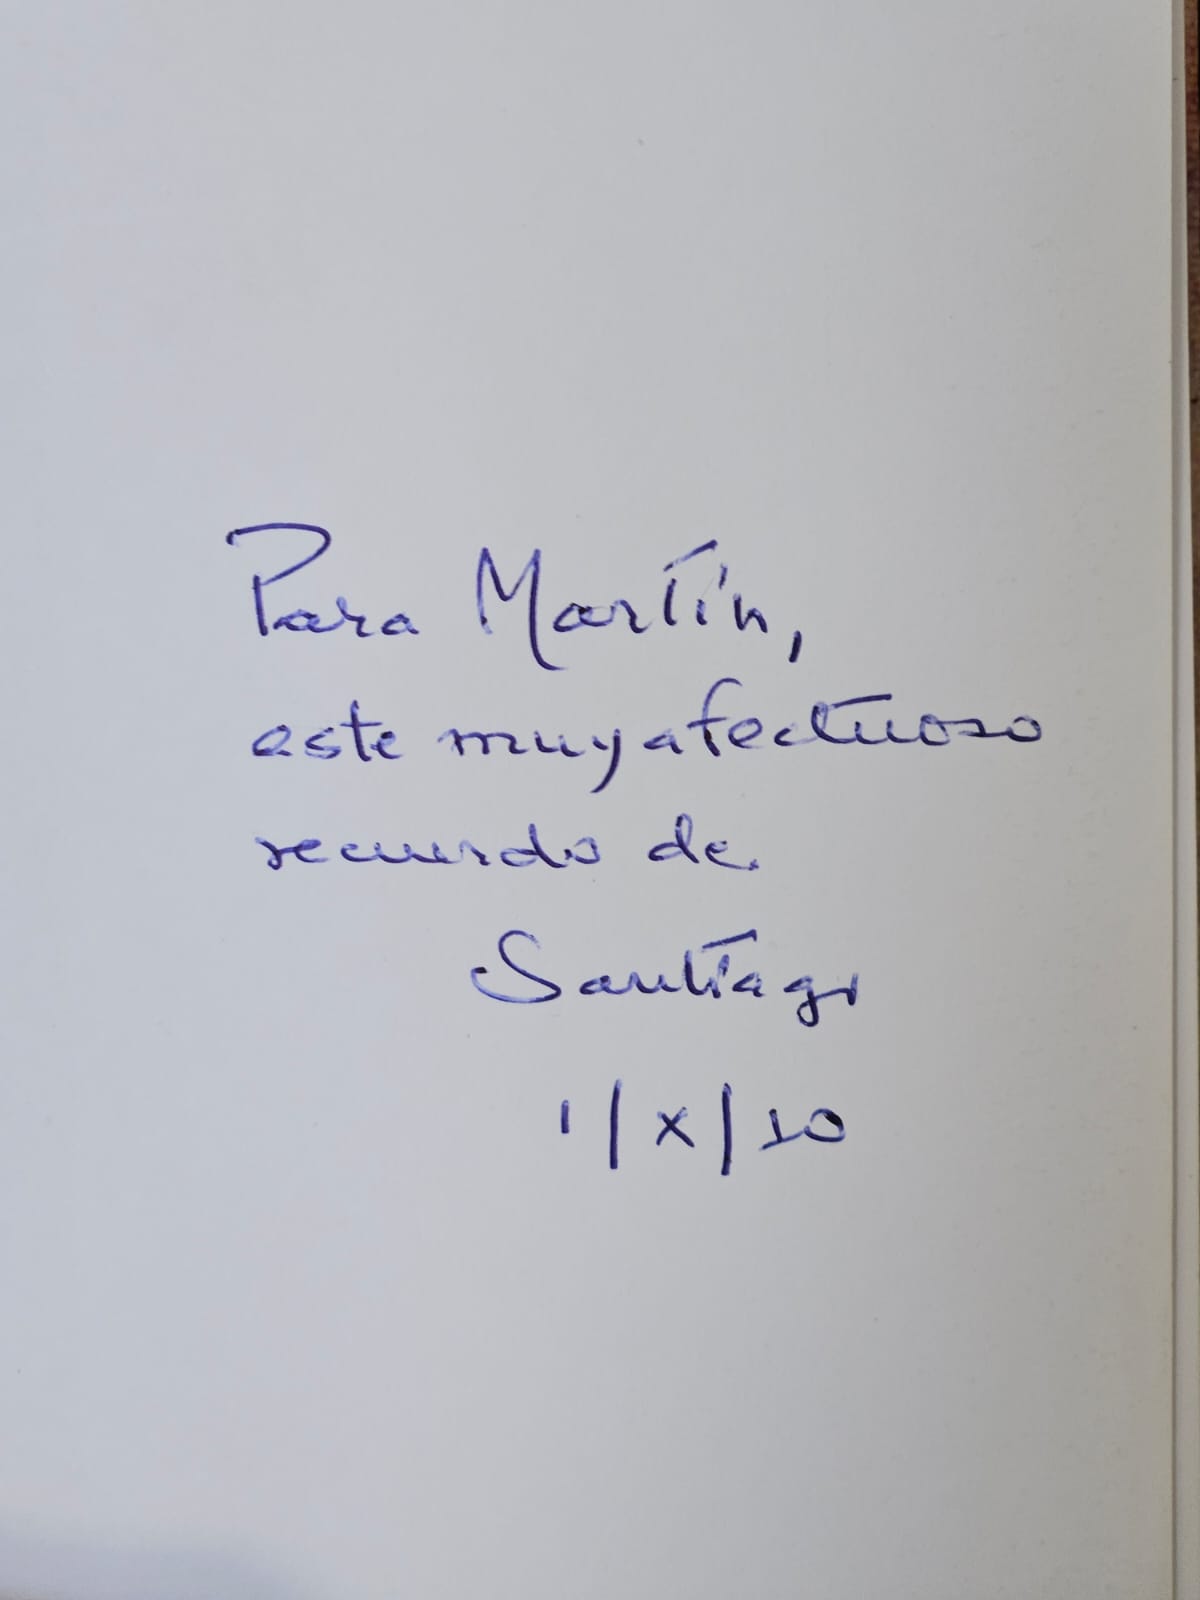 Para Martín,
este muy afectuoso
recuerdo de
Santiago
1/X/10